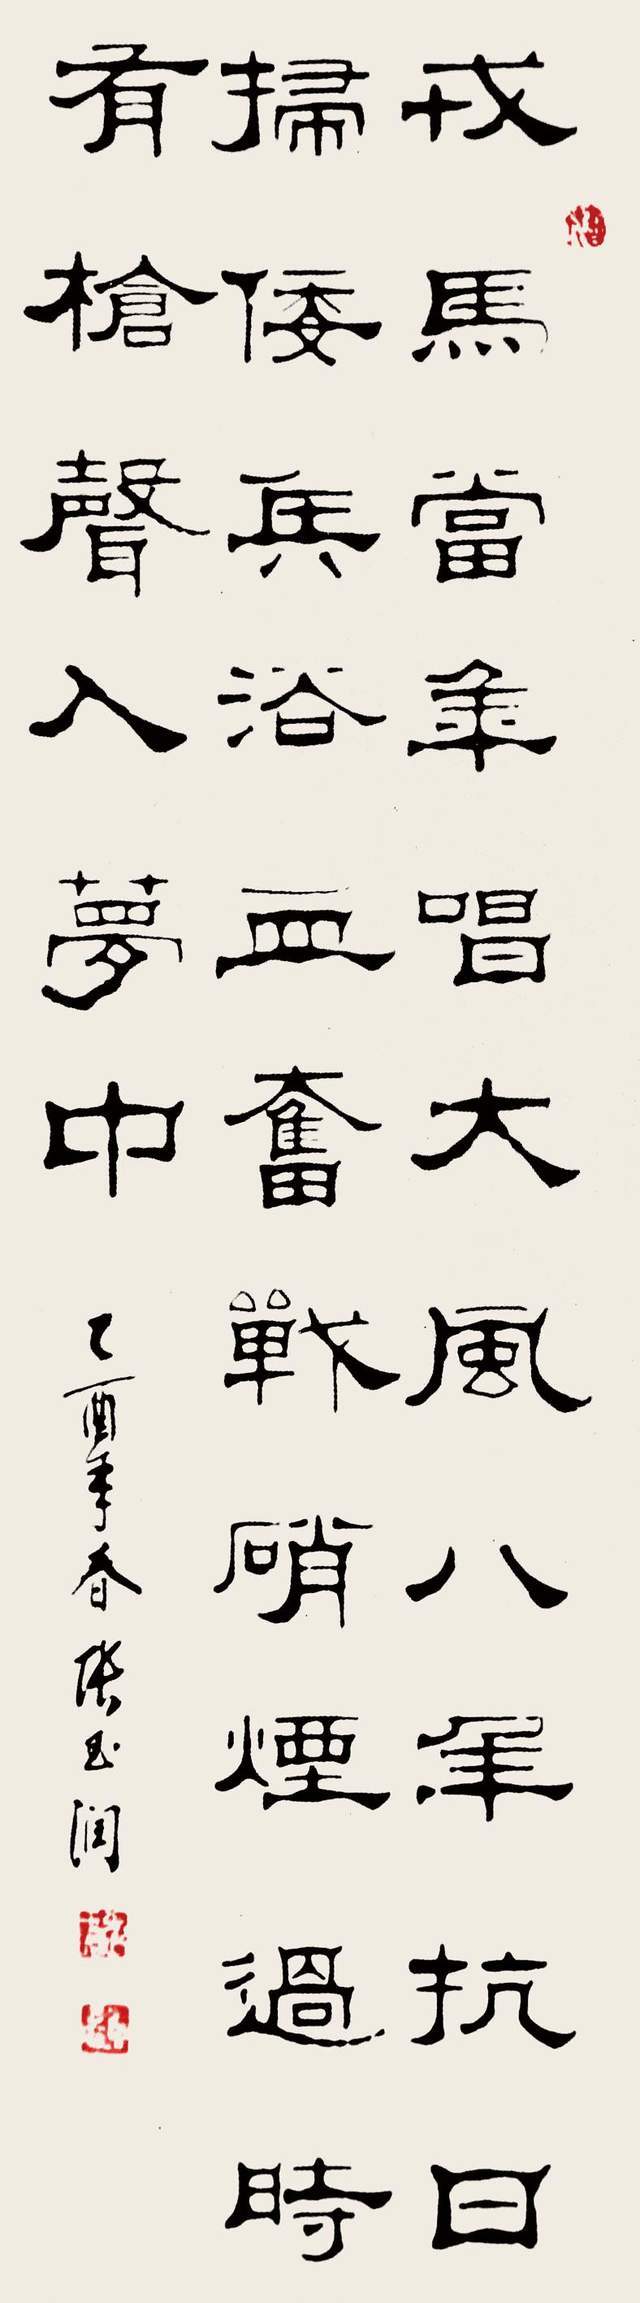 戎馬當年唱大風八年抗日
掃倭兵浴血奮戰硝煙過時
有槍聲入夢中
乙酉年春張玉潤